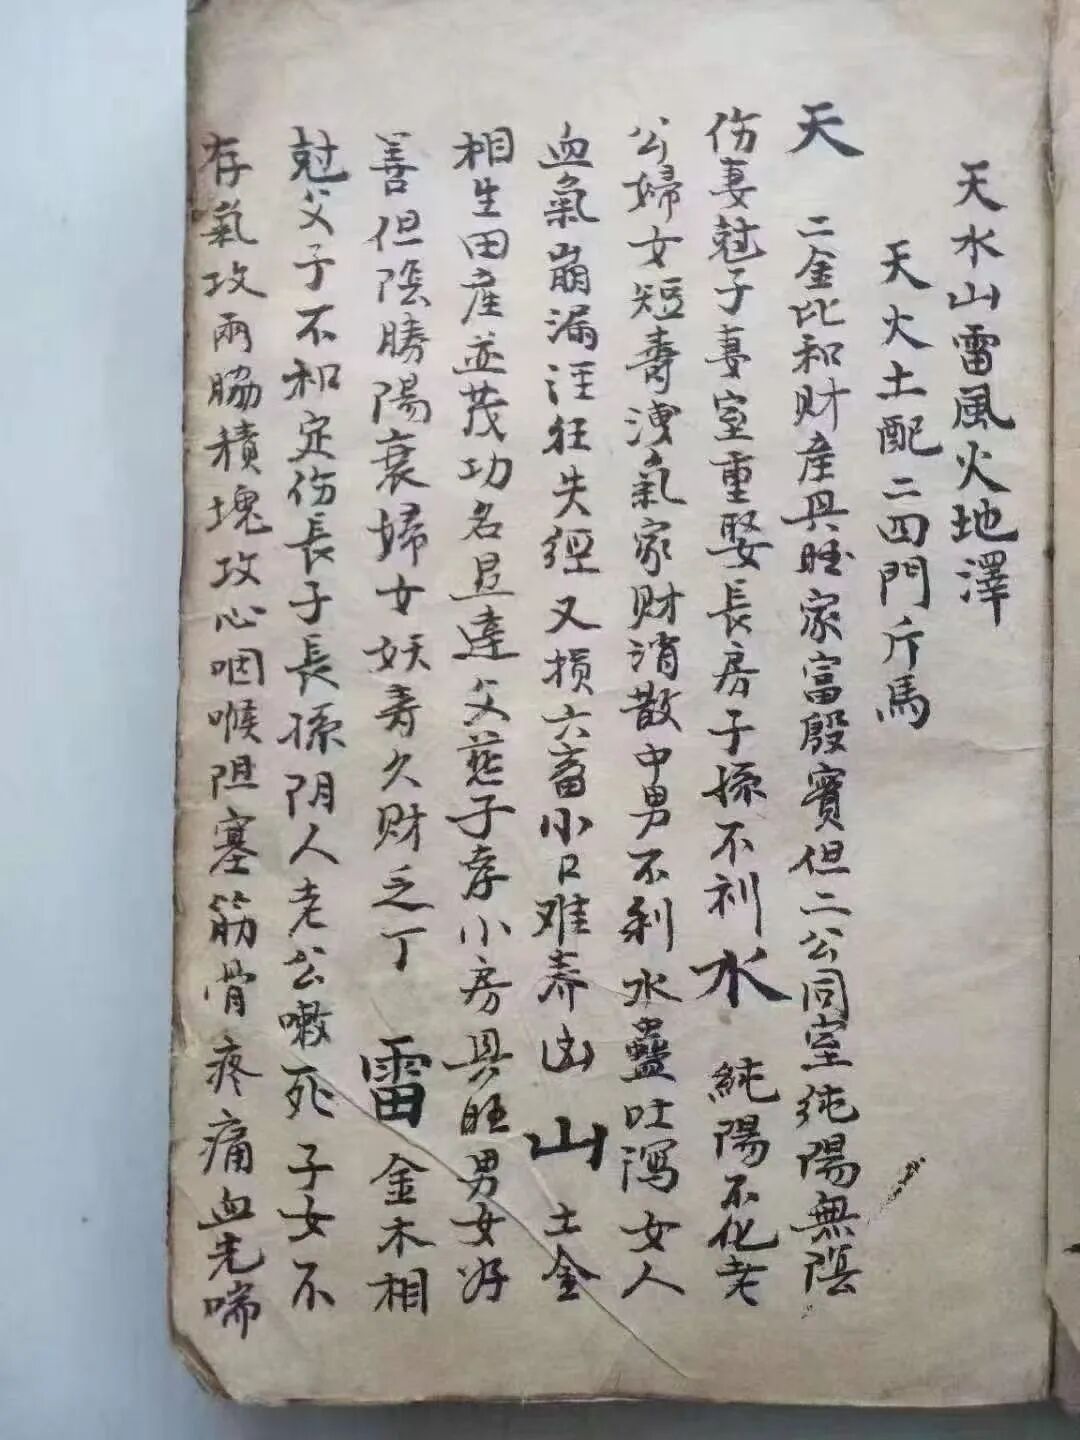 天水山雷風火地澤
天火土配二四門斤馬
天 二金比和財產具旺家富殷實但二公同室純陽無陰
伤妻尅子妻室重娶長房子孫不利水 純陽不化老
公婦女短壽洩氣家财消散中男不利水蠱吐瀉女人
血氣崩漏狂失經又損六畜小口难养凶 山 土金
相生田產並茂功名显達父慈子孝小房具旺男女好
善但陰勝陽衰婦女妖寿久财乏丁 雷 金木相
尅父子不和定伤長子長孫阴人老公嗽死子女不
存氣攻兩脇積塊攻心咽喉阻塞筋骨疼痛血光喘